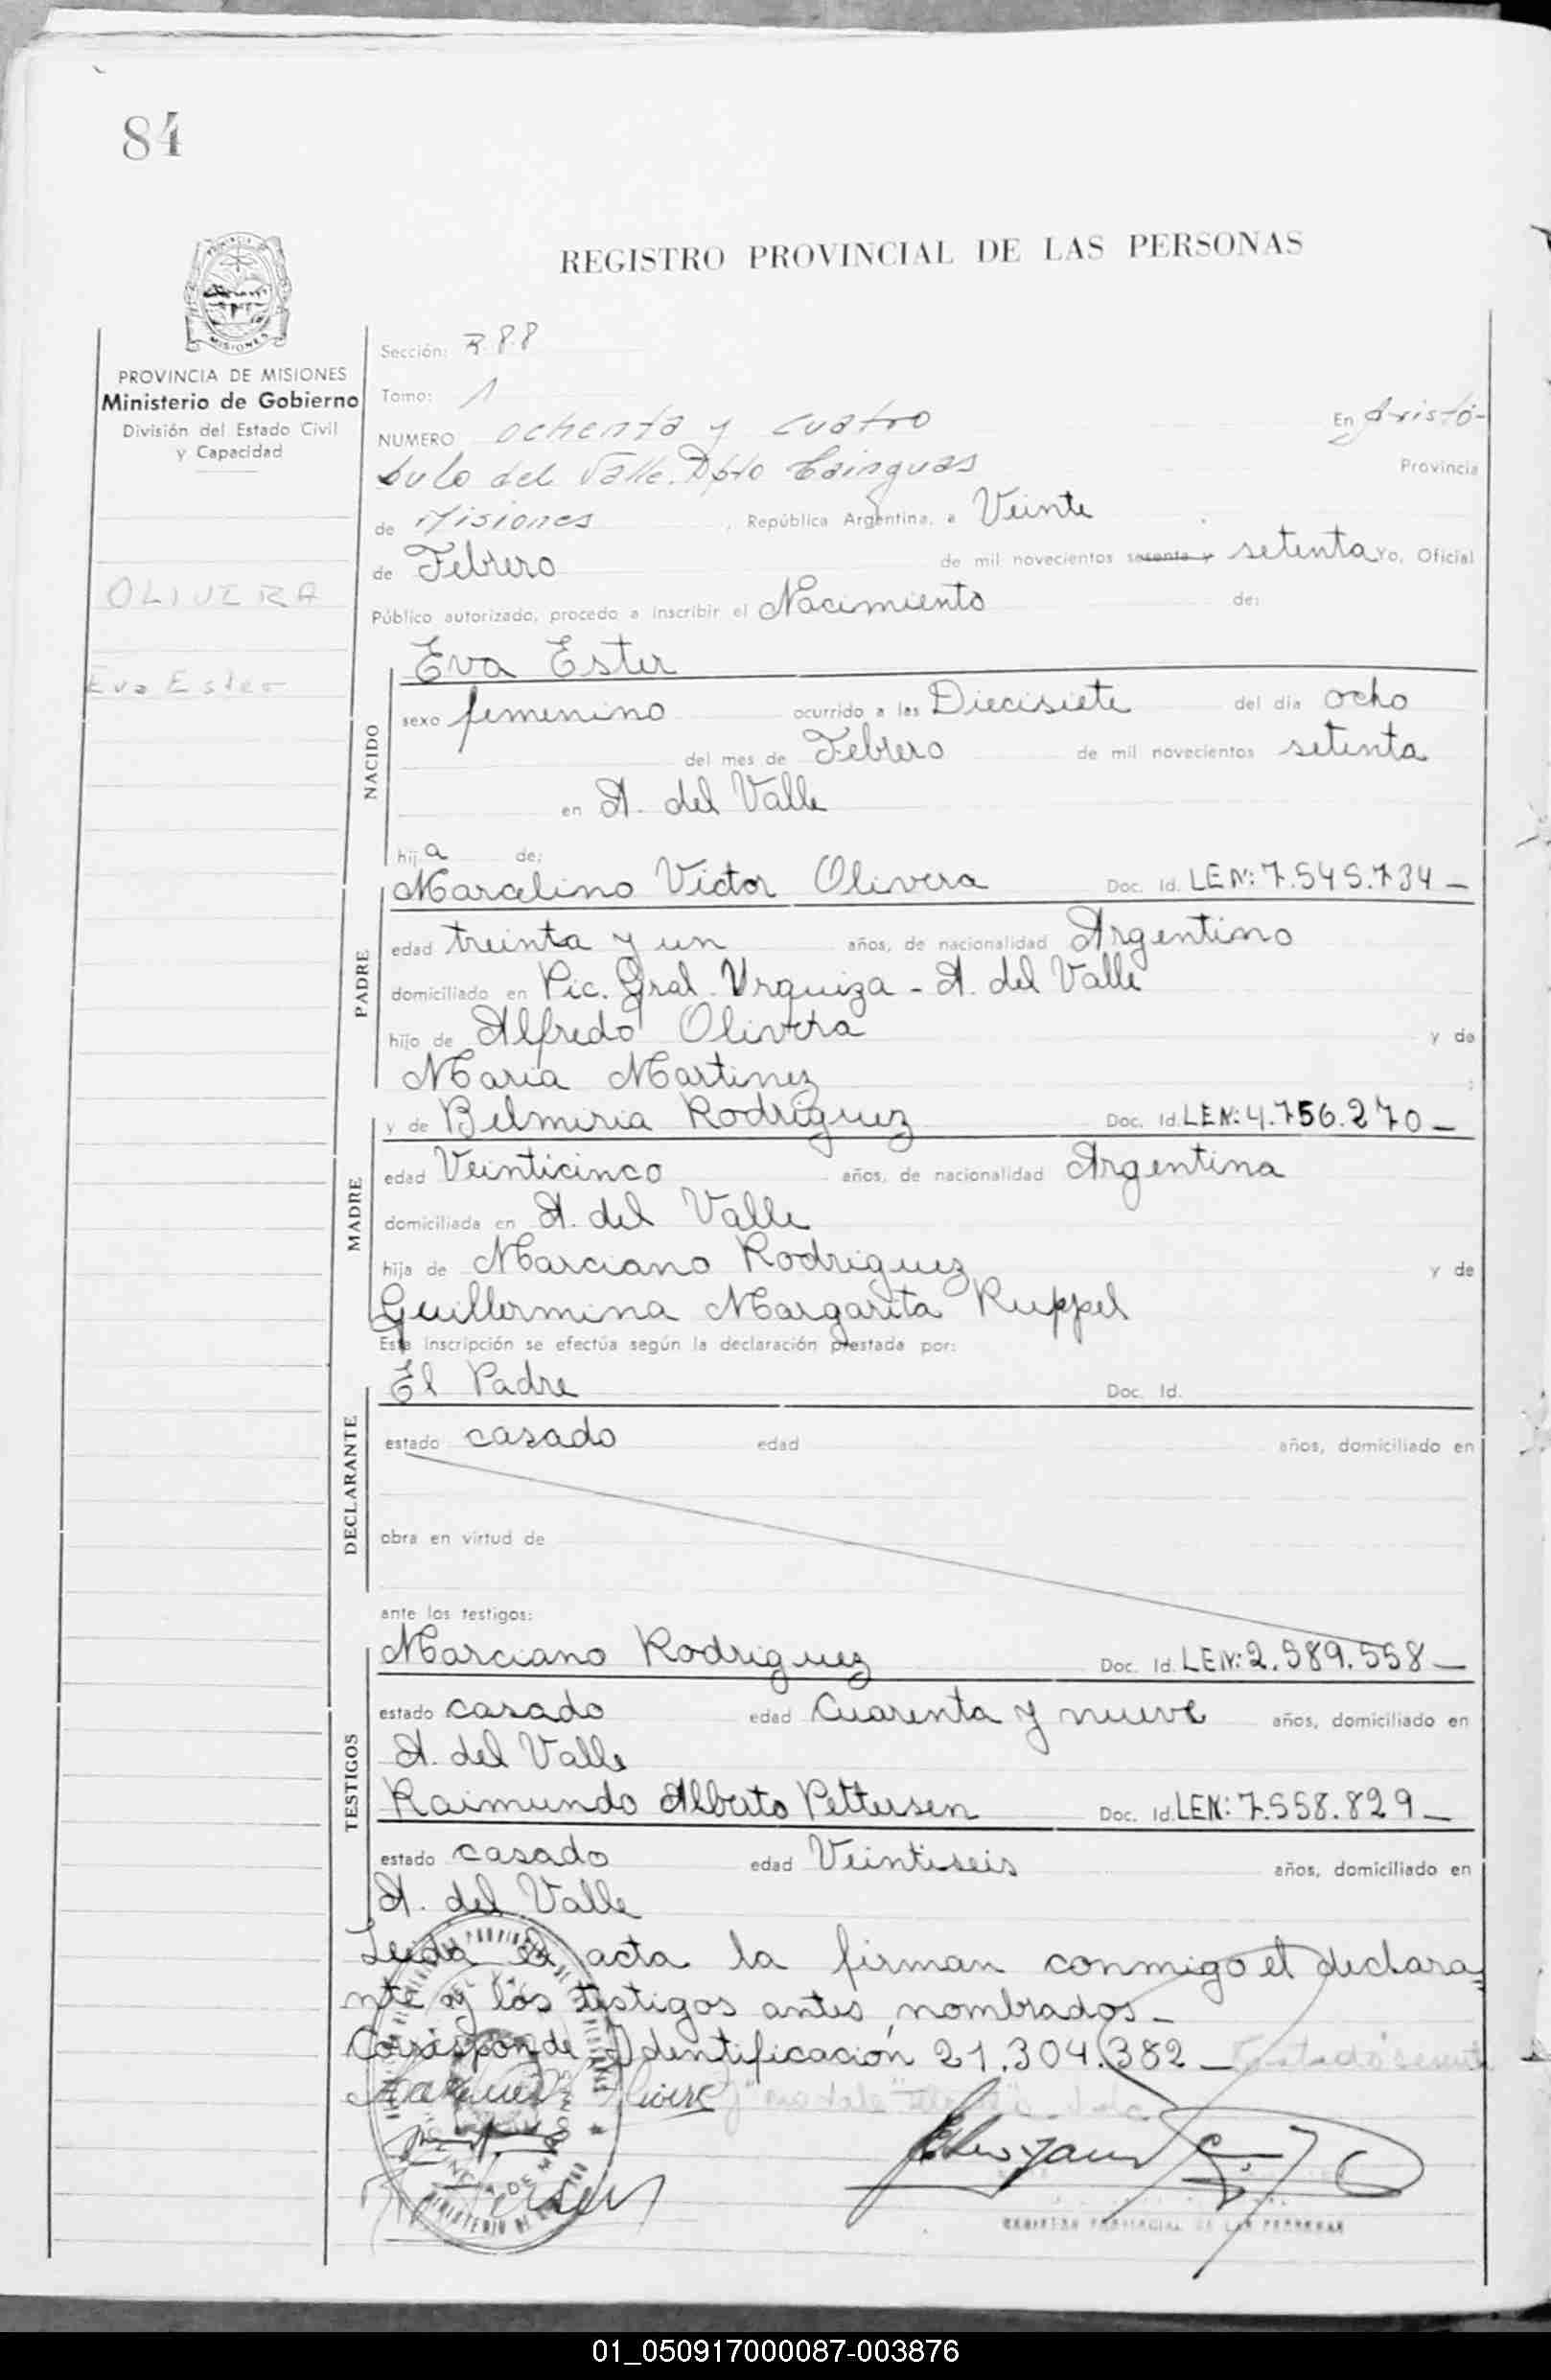 84
REGISTRO PROVINCIAL DE LAS PERSONAS
MISIONES
PROVINCIA DE MISIONES
Ministerio de Gobierno
División del Estado Civil
y Capacidad
OLIVERA
Eva Ester
Sección: R.88
Tomo: 1
NUMERO ochenta y cuatro En Aristó-
bulo del Valle. Dpto Cainguas Provincia
de Misiones, República Argentina, a Veinte
de Febrero de mil novecientos sesenta y setenta Yo, Oficial
Público autorizado, procedo a inscribir el Nacimiento de:
NACIDO
Eva Ester
sexo femenino ocurrido a las Diecisiete del día ocho
del mes de Febrero de mil novecientos setenta
en A. del Valle
hija de:
PADRE
Marcelino Victor Olivera Doc. Id. LEN: 7.545.734 -
edad treinta y un años, de nacionalidad Argentino
domiciliado en Pic. Gral. Urquiza - A. del Valle
hijo de Alfredo Olivera y de
Maria Martinez ;
MADRE
y de Belmiria Rodriguez Doc. Id. LEN: 4.756.270 -
edad Veinticinco años, de nacionalidad Argentina
domiciliada en A. del Valle
hija de Marciano Rodriguez y de
Guillermina Margarita Ruppel
Esta inscripción se efectúa según la declaración prestada por:
DECLARANTE
El Padre Doc. Id.
estado casado edad años, domiciliado en
obra en virtud de
ante los testigos:
TESTIGOS
Marciano Rodriguez Doc. Id. LEN: 2.589.558 -
estado casado edad Cuarenta y nueve años, domiciliado en
A. del Valle
Raimundo Alberto Pettersen Doc. Id. LEN: 7.558.829 -
estado casado edad Veintiseis años, domiciliado en
A. del Valle
Leida el acta la firman conmigo el declara-
nte y los testigos antes nombrados -
Corresponde Identificación 21.304.382 -
REGISTRO PROVINCIAL DE LAS PERSONAS
01_050917000087-003876